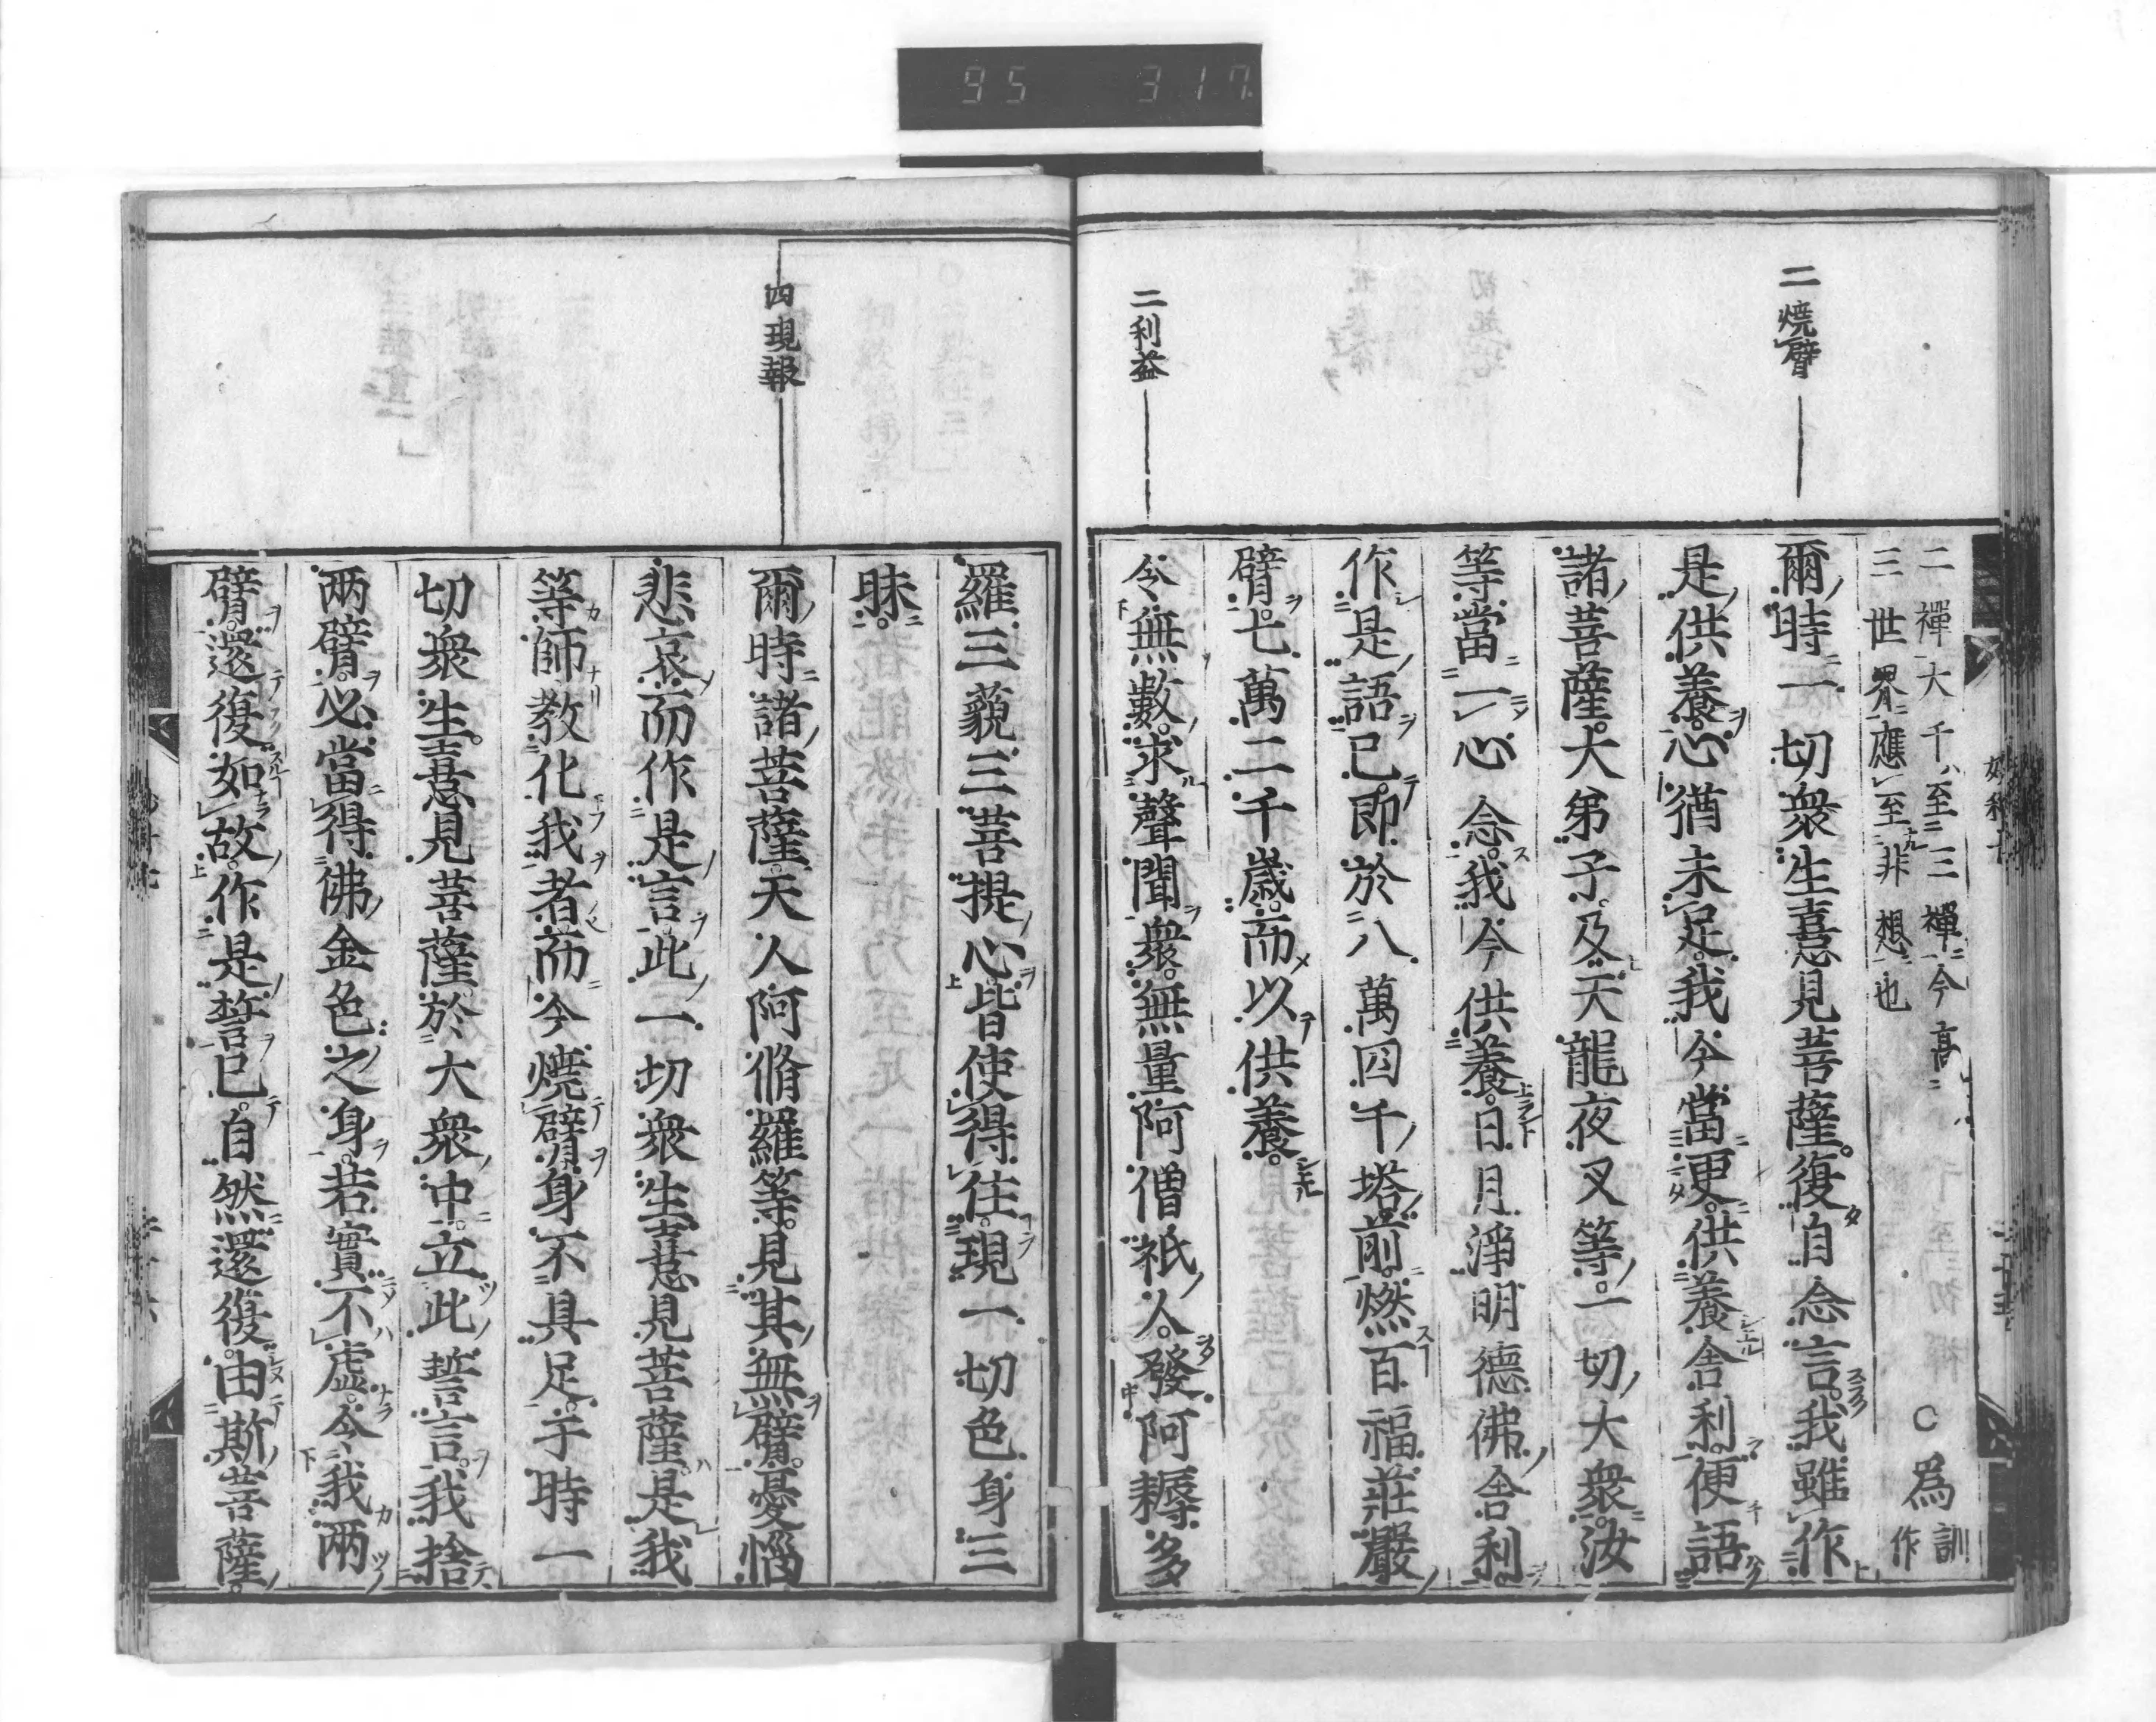 95 317
二燒臂
二禪大千至三禪今高
三世界應至非想也
C爲訓作
爾時一切衆生憙見菩薩復自念言我雖作
是供養心猶未足我今當更供養舍利便語
諸菩薩大弟子及天龍夜叉等一切大衆汝
等當一心念我今供養日月淨明德佛舍利
作是語已即於八萬四千塔前燃百福莊嚴
臂七萬二千歲而以供養
二利益
令無數求聲聞衆無量阿僧祇人發阿耨多
羅三藐三菩提心皆使得住現一切色身三
昧
四現報
爾時諸菩薩天人阿脩羅等見其無臂憂惱
悲哀而作是言此一切衆生憙見菩薩是我
等師教化我者而今燒臂身不具足于時一
切衆生憙見菩薩於大衆中立此誓言我捨
两臂必當得佛金色之身若實不虛令我兩
臂還復如故作是誓已自然還復由斯菩薩